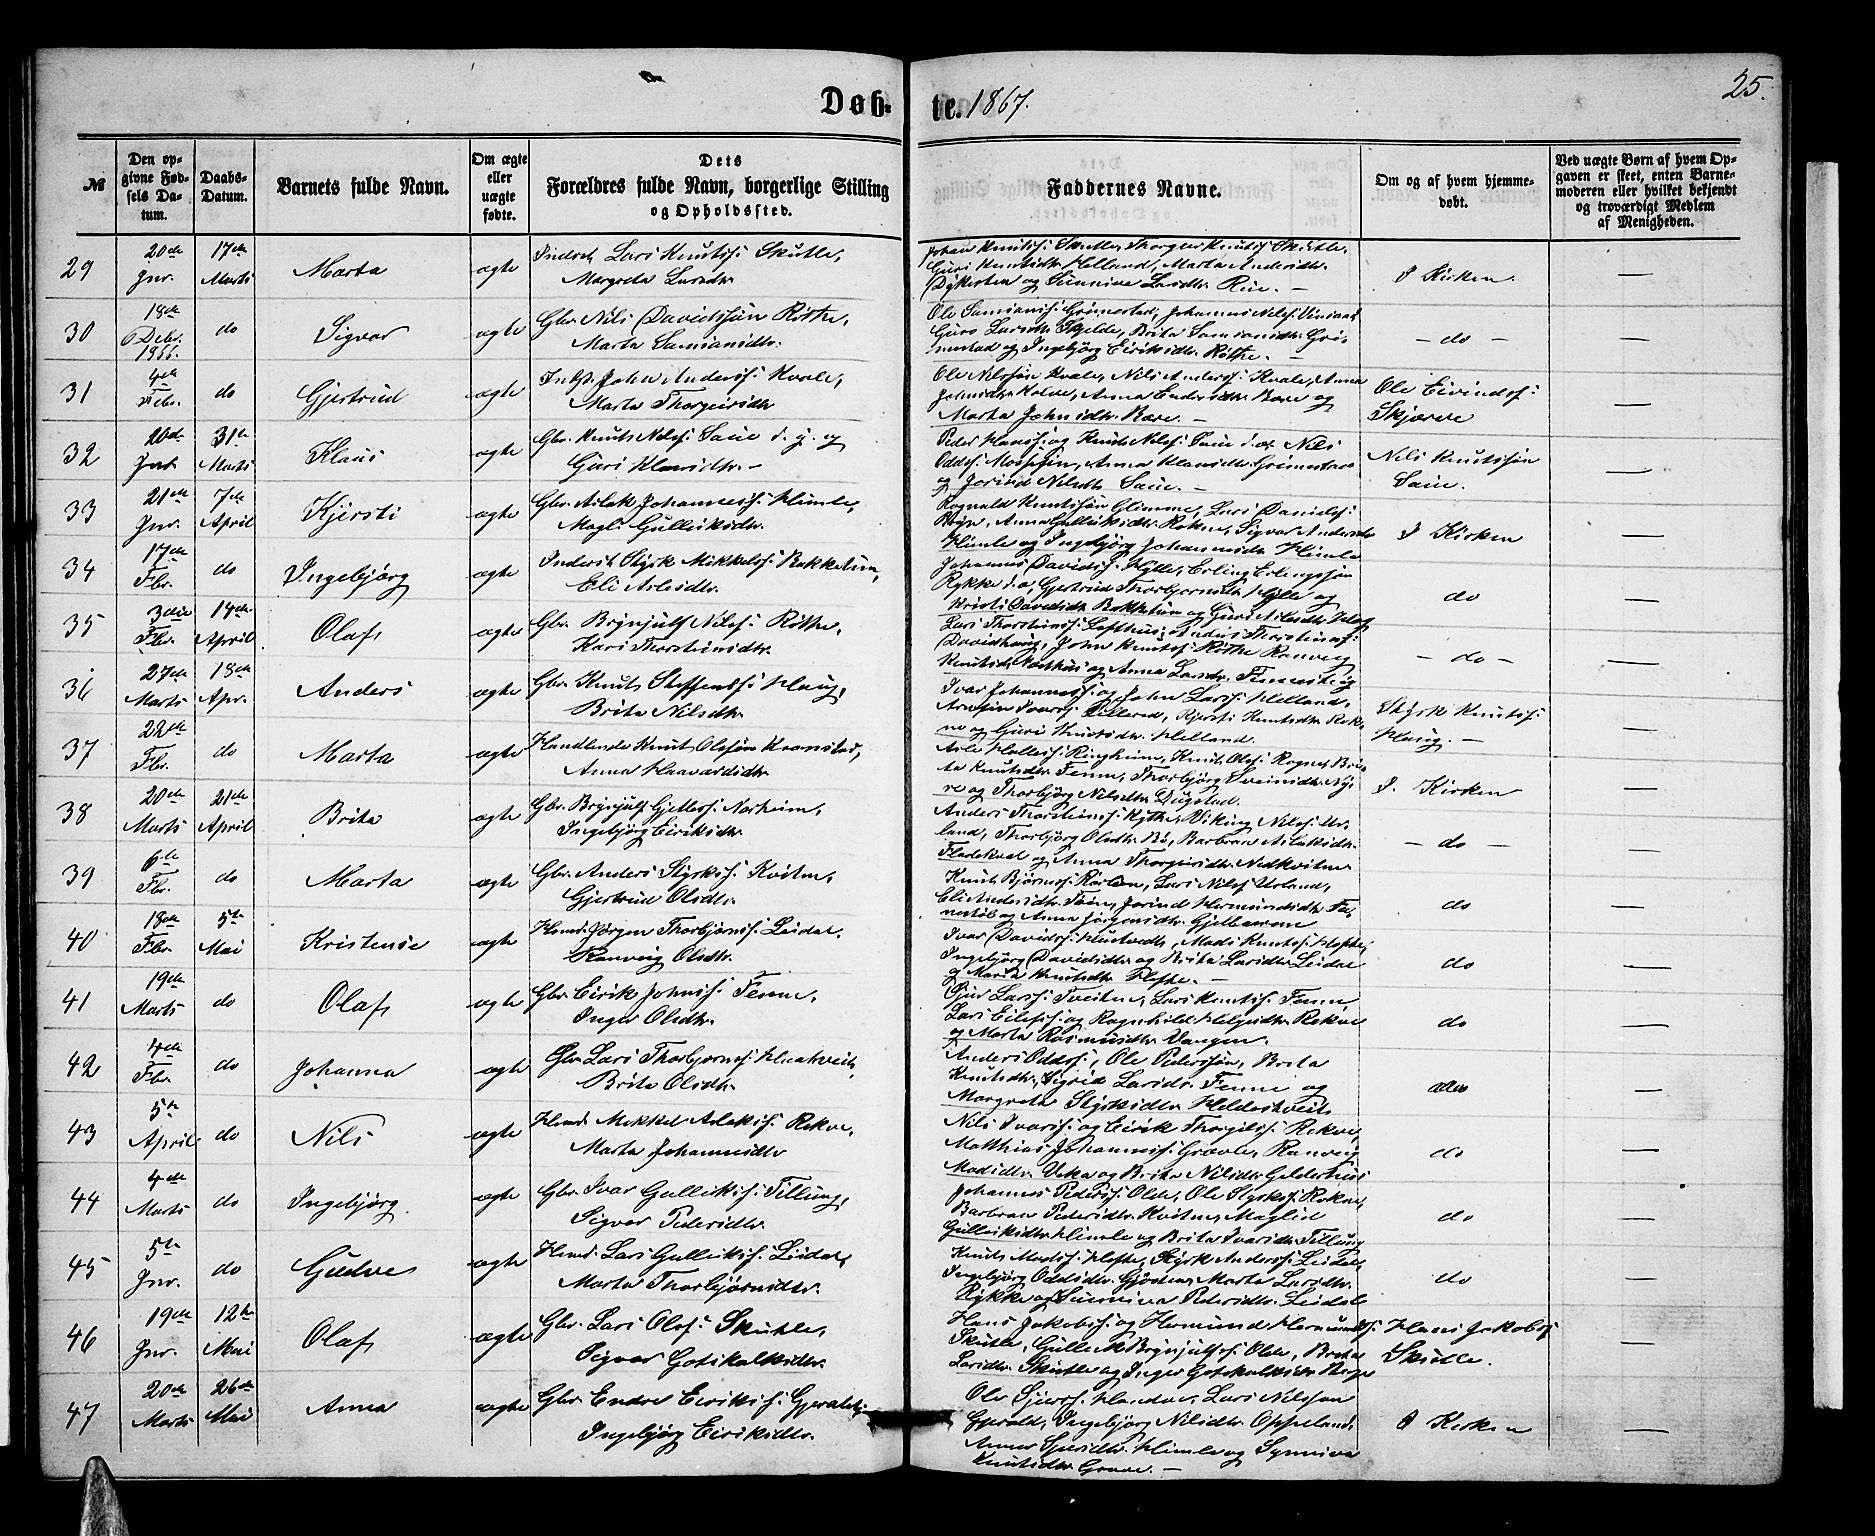 Døb-
te. 1867.
25.
№
Den op-
givne Fød-
sels Da-
tum.
Daabs-
Datum.
Barnets fulde Navn.
Om ægte
eller
uægte
fødte.
Dets
Forældres fulde Navn, borgerlige Stilling
og Opholdssted.
Faddernes Navne.
Om og af hvem hjemme-
døbt.
Ved uægte Børn af hvem Op-
gaven er skeet, enten Barne-
moderen eller hvilket bekjendt
og troværdigt Medlem
af Menigheden.
29 20de Jnr. 17de Marts Marta ægte Inderst Lars Knutss: Skutle,
Margreta Larsdtr.
Johan Knutss: Skutle, Thorgeir Knutss: Skutle,
Guri Knutsdtr. Helland, Marta Andersdtr.
Dykesten og Sunniva Larsdtr. Rue. —
I Kirken. —
30 18de Debr. 1866. do Sigvor ægte Gbr. Nils Davidssøn Røthe,
Marta Samsonsdtr.
Ole Samsonss: Grimestad, Johannes Nilss:
Guro Larsdtr. Skjelde, Brita Samsonsdtr. Gri-
mestad og Ingebjørg Eiriksdtr. Røthe. —
— do — —
31 4de Febr. do Gjertrud ægte Indst. John Anderss: Kvale,
Marta Thorgeirsdtr.
Ole Nilssøn Kvale, Nils Anderss: Kvale, Anna
Johnsdtr. Kolve, Anna Endresdtr. Børe og
Marta Johnsdtr. Børe. —
Ole Eivindss:
Skjerve —
32 20de Jnr. 31te Marts Klaus ægte Gbr. Knut Nilss: Saue d. y. og
Guri Klausdtr. —
Peder Klauss: og Knut Nilss: Saue d. æ. Nils
Oddss: Mossefin, Anna Klausdtr. Grimestad
og Jorind Nilsdtr. Saue. —
Nils Knutssøn
Saue. —
33 21de Jnr. 7de April Kjersti ægte Gbr. Aslak Johanness: Himle,
Magli Gulleiksdtr.
Rognald Knutssøn Glimme, Lars Davidss:
Anna Gulleiksdtr. Rokne, Sigvor Andersdtr.
Himle og Ingebjørg Johannesdtr. Himle
I Kirken —
34 17de Fbr. do Ingebjørg ægte Inderst Styrk Mikkelss: Bokketun,
Eli Arlesdtr.
Johannes Davidss: Hylle, Erling Erlingssøn
Rykke d. æ, Gjertrud Thorbjørnsdtr. Hylle og
Kristi Davidsdtr. Bokketun og Guri
do —
35 3die Fbr. 14de April Olaf ægte Gbr. Brynjulf Nilss: Røthe,
Kari Thorsteinsdtr.
Lars Thorsteinss: Lofthus, Anders Thorsteinss:
Davidhaug, John Knutss: Røthe Ranveig
Knutsdtr. Lofthus og Anna Larsdtr. Finnesteig
— do — —
36 27de Marts 18de Apr. Anders ægte Gbr. Knut Steffenss: Haug,
Brita Nilsdtr.
Ivar Johanness: og John Larss: Helland,
Arnfin Ivarss: Kjersti Knutsdtr. Rok-
ne og Guri Knutsdtr. Helland.
Styrk Knutss:
Haug. — —
37 22de Fbr. do Marta ægte Handlende Knut Olssøn Kronstad,
Anna Haavardsdtr.
Arle Holless: Ringheim, Knut Olss: Rogne, Bri-
ta Knutsdtr. Fenne, Thorbjørg Sveinsdtr. Ny-
re og Thorbjørg Nilsdtr. Dugstad.
I. Kirken —
38 20de Marts 21de April Brita ægte Gbr. Brynjulf Gjelless: Norheim,
Ingebjørg Eiriksdtr.
Anders Thorsteinss: Kythe, Viking Nilss: Ur-
land, Thorbjørg Olsdtr. Bø, Barbra Aslaksdtr.
Fladekval og Anna Thorgeirsdtr. Nedkvitne
— do — —
39 6te Fbr. do Marta ægte Gbr. Anders Styrkss: Kvitne,
Gjertrud Olsdtr.
Knut Bjørnss: Lars Nilss: Urland,
Eli Andersdtr. Jorind Hermundsdtr. Fin-
nestøl og Anna Jørgensdtr. Gjelleraan
do —
40 18de Fbr. 5te Mai Kristense ægte Huusd. Jørgen Thorbjørnss: Leidal.
Ranveig Olsdtr.
Ivar Davidss: Hustvedt, Mads Knutss: Hefte,
Ingebjørg Davidsdtr. og Brita Larsdtr. Leidal
og Marta Knutsdtr. Hefte. —
do —
41 19de Marts do Olaf ægte Gbr. Eirik Johnss: Fenne,
Inger Olsdtr.
Sjur Larss: Tveitne, Lars Knutss: Fenne
Lars Eilefss: og Ragnhild Helgesdtr. Rekve
og Marta Rasmusdtr. Vangen.
do —
42 4de Fbr. do Johanna ægte Gbr. Lars Thorbjørnss:
Brita Olsdtr.
Anders Oddss:, Ole Pederssøn, Brita
Knutsdtr., Sigrid Larsdtr. Fenne og
Margreta Styrksdtr. Heldestveit
—
43 5te April do Nils ægte Huusd. Mikkel Aslakss: Rekve,
Marta Johannesdtr
Nils Ivarss: og Eirik Thorgilss: Rekve,
Matthias Johanness: Græve, Ranveig
Madsdtr. Veka og Brita Nilsdtr. Gjelderhus
do —
44 4de Marts do Ingebjørg. ægte Gbr. Ivar Gulleikss: Tillung,
Sigvor Pedersdtr.
Johannes Pederss: Olde, Ole Styrkss: Rokne,
Barbra Pedersdtr. Kvitne, Maglid
Gulleiksdtr. Himle og Brita Ivarsdtr. Tillung
do —
45 5te Jnr. do Gudve ægte Huusd. Lars Gulleikss: Leidal,
Marta Thorbjørnsdtr.
Knut Madss: Hefte, Styrk Anderss: Leidal,
Ingebjørg Oddsdtr. Gjøstein, Marta Larsdtr.
Rykke og Sunniva Pedersdtr. Leidal
do —
46 19de Jnr. 12te Mai Olaf ægte Gbr. Lars Olss: Skutle,
Sigvor Gotskalksdtr.
Hans Jakobss: og Hermund Hermundss:
Skutle, Gulleik Brynjulfss: Olde, Brita
Larsdtr. Skutle og Inger Gotskalksdtr. Berge
Hans Jakobss:
Skutle. —
47 20de Marts 26de Mai Anna ægte Gbr. Endre Eirikss: Gjerald,
Ingebjørg Eiriksdtr.
Ole Sjurss: Lars Nilssøn
Gjerald, Ingebjørg Nilsdtr. Oppeland,
Anna Sjursdtr. Himle og Synneva
Knutsdtr. Græve. —
I Kirken —